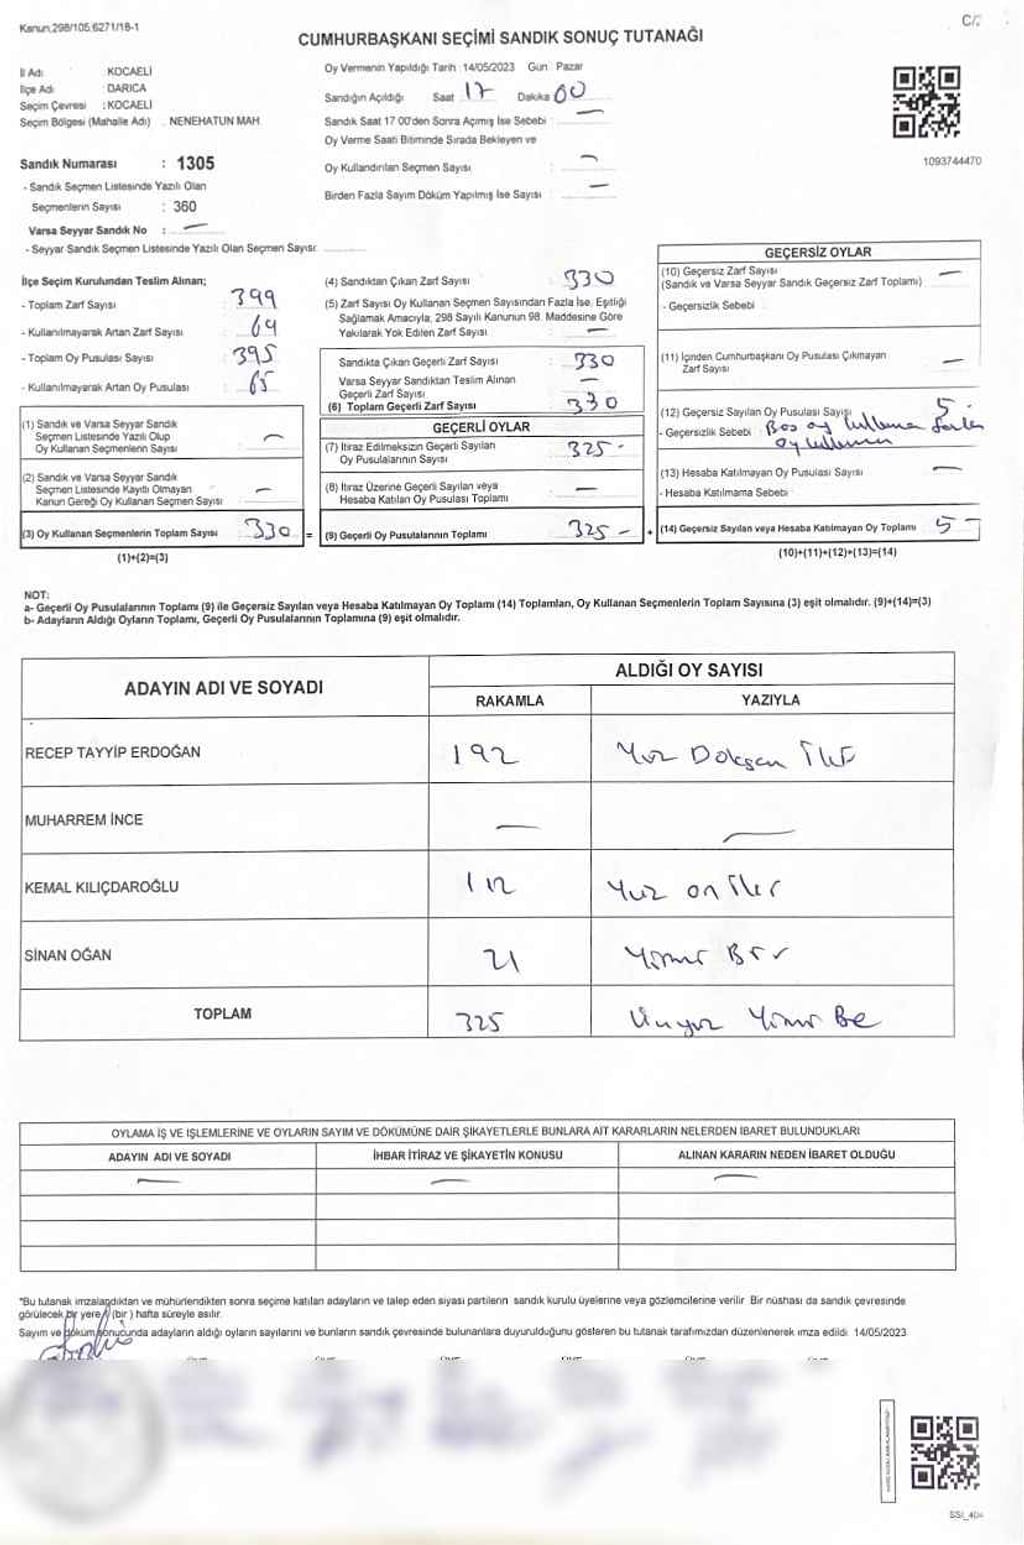 Kanun,298/105,6271/18-1
C/
CUMHURBAŞKANI SEÇİMİ SANDIK SONUÇ TUTANAĞI
İl Adı : KOCAELİ
İlçe Adı : DARICA
Seçim Çevresi : KOCAELİ
Seçim Bölgesi (Mahalle Adı) NENEHATUN MAH.
Oy Vermenin Yapıldığı Tarih : 14/05/2023 Gün : Pazar
Sandığın Açıldığı Saat 17 Dakika 00
Sandık Saat 17 00'den Sonra Açılmış İse Sebebi : —
Oy Verme Saati Bitiminde Sırada Bekleyen ve
Oy Kullandırılan Seçmen Sayısı : —
Birden Fazla Sayım Döküm Yapılmış İse Sayısı —
1093744470
Sandık Numarası : 1305
- Sandık Seçmen Listesinde Yazılı Olan
Seçmenlerin Sayısı : 360
Varsa Seyyar Sandık No : —
- Seyyar Sandık Seçmen Listesinde Yazılı Olan Seçmen Sayısı:
İlçe Seçim Kurulundan Teslim Alınan;
- Toplam Zarf Sayısı 399
- Kullanılmayarak Artan Zarf Sayısı 69
- Toplam Oy Pusulası Sayısı 395
- Kullanılmayarak Artan Oy Pusulası 65
(1) Sandık ve Varsa Seyyar Sandık
Seçmen Listesinde Yazılı Olup
Oy Kullanan Seçmenlerin Sayısı —
(2) Sandık ve Varsa Seyyar Sandık
Seçmen Listesinde Kayıtlı Olmayan
Kanun Gereği Oy Kullanan Seçmen Sayısı —
(3) Oy Kullanan Seçmenlerin Toplam Sayısı 330 =
(1)+(2)=(3)
(4) Sandıktan Çıkan Zarf Sayısı 330
(5) Zarf Sayısı Oy Kullanan Seçmen Sayısından Fazla İse, Eşitliği
Sağlamak Amacıyla, 298 Sayılı Kanunun 98. Maddesine Göre
Yakılarak Yok Edilen Zarf Sayısı —
Sandıkta Çıkan Geçerli Zarf Sayısı : 330
Varsa Seyyar Sandıktan Teslim Alınan
Geçerli Zarf Sayısı —
(6) Toplam Geçerli Zarf Sayısı : 330
GEÇERLİ OYLAR
(7) İtiraz Edilmeksizin Geçerli Sayılan
Oy Pusulalarının Sayısı : 325 -
(8) İtiraz Üzerine Geçerli Sayılan veya
Hesaba Katılan Oy Pusulası Toplamı : —
(9) Geçerli Oy Pusulalarının Toplamı 325 - +
GEÇERSİZ OYLAR
(10) Geçersiz Zarf Sayısı —
(Sandık ve Varsa Seyyar Sandık Geçersiz Zarf Toplamı)
- Geçersizlik Sebebi :
(11) İçinden Cumhurbaşkanı Oy Pusulası Çıkmayan
Zarf Sayısı —
(12) Geçersiz Sayılan Oy Pusulası Sayısı 5 -
- Geçersizlik Sebebi : Boş oy kullanma
oy kullanma
(13) Hesaba Katılmayan Oy Pusulası Sayısı —
- Hesaba Katılmama Sebebi
(14) Geçersiz Sayılan veya Hesaba Katılmayan Oy Toplamı 5 -
(10)+(11)+(12)+(13)=(14)
NOT:
a- Geçerli Oy Pusulalarının Toplamı (9) ile Geçersiz Sayılan veya Hesaba Katılmayan Oy Toplamı (14) Toplamları, Oy Kullanan Seçmenlerin Toplam Sayısına (3) eşit olmalıdır. (9)+(14)=(3)
b- Adayların Aldığı Oyların Toplamı, Geçerli Oy Pusulalarının Toplamına (9) eşit olmalıdır.
ADAYIN ADI VE SOYADI
ALDIĞI OY SAYISI
RAKAMLA YAZIYLA
RECEP TAYYİP ERDOĞAN 192 Yüz Doksan İki
MUHARREM İNCE — —
KEMAL KILIÇDAROĞLU 112 Yüz on iki
SİNAN OĞAN 21 Yirmi Bir
TOPLAM 325 Üçyüz Yirmi Be
OYLAMA İŞ VE İŞLEMLERİNE VE OYLARIN SAYIM VE DÖKÜMÜNE DAİR ŞİKAYETLERLE BUNLARA AİT KARARLARIN NELERDEN İBARET BULUNDUKLARI
ADAYIN ADI VE SOYADI İHBAR İTİRAZ VE ŞİKAYETİN KONUSU ALINAN KARARIN NEDEN İBARET OLDUĞU
— — —
*Bu tutanak imzalandıktan ve mühürlendikten sonra seçime katılan adayların ve talep eden siyasi partilerin sandık kurulu üyelerine veya gözlemcilerine verilir. Bir nüshası da sandık çevresinde
görülecek bir yere 1 (bir) hafta süreyle asılır.
Sayım ve döküm sonucunda adayların aldığı oyların sayılarını ve bunların sandık çevresinde bulunanlara duyurulduğunu gösteren bu tutanak tarafımızdan düzenlenerek imza edildi. 14/05/2023